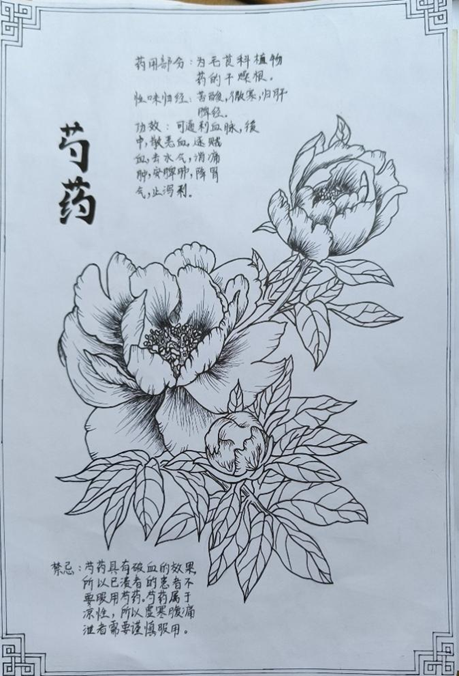 芍药
药用部分：为毛茛科植物
药的干燥根。
性味归经：苦酸，微寒，归肝
脾经。
功效：可通利血脉，缓
中，散恶血，逐贼
血，去水气，消痛
肿，安脾肺，降胃
气，止泻利。
禁忌：芍药具有破血的效果
所以已溃者的患者不
要服用芍药。芍药属于
凉性，所以虚寒腹痛
泄者需要谨慎服用。